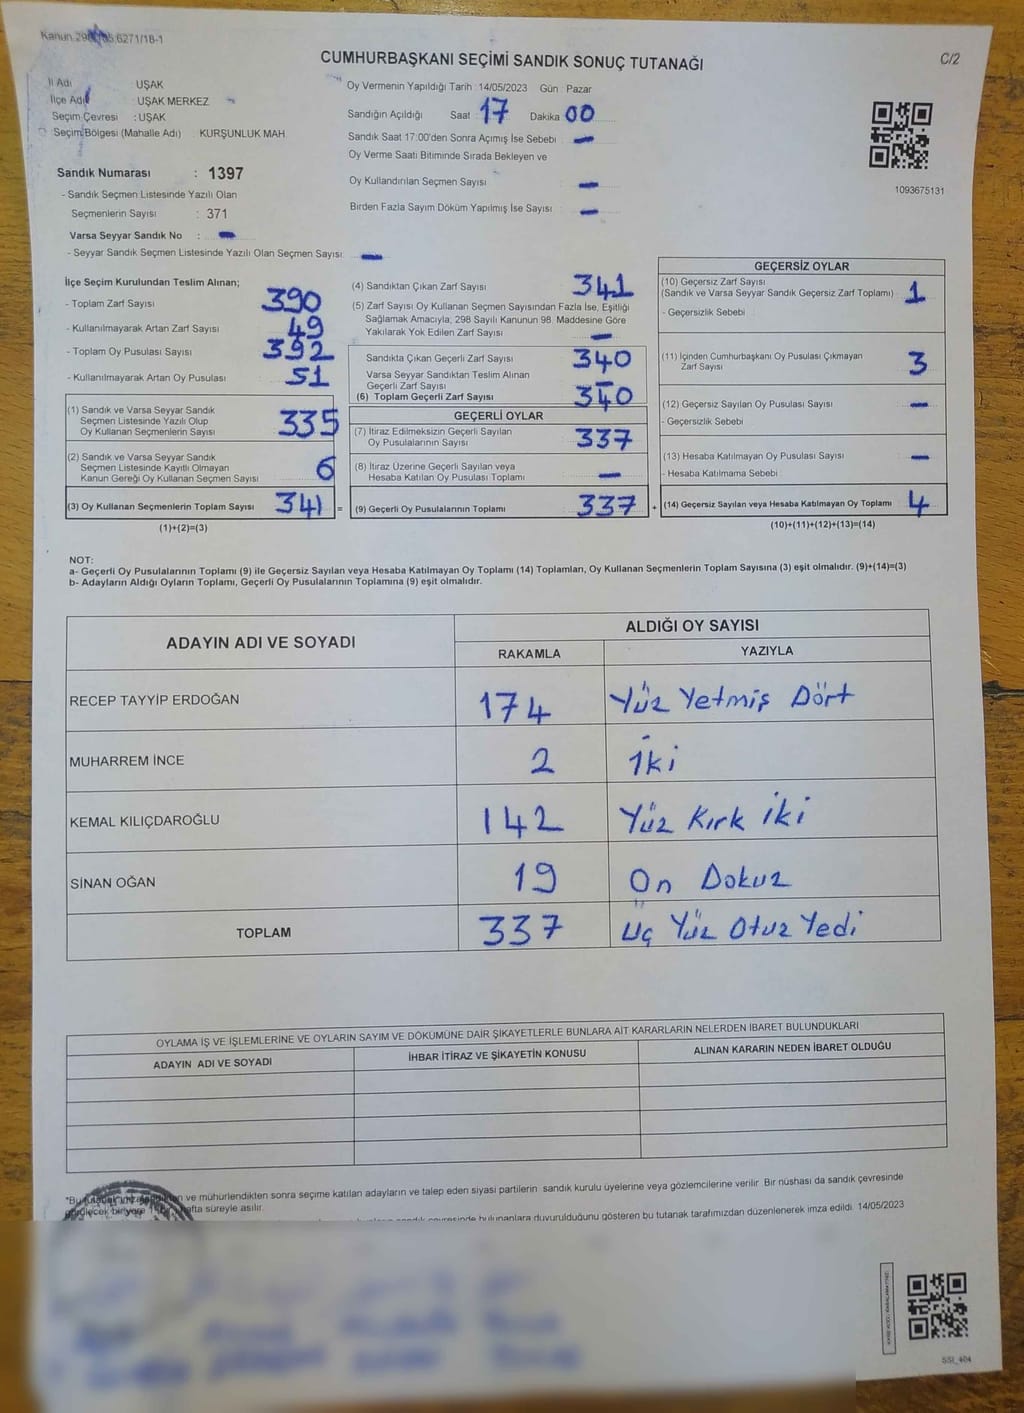 CUMHURBAŞKANI SEÇİMİ SANDIK SONUÇ TUTANAĞI
C/2
İl Adı UŞAK
İlçe Adı UŞAK MERKEZ
Seçim Çevresi : UŞAK
Seçim Bölgesi (Mahalle Adı) : KURŞUNLUK MAH.
Sandık Numarası : 1397
- Sandık Seçmen Listesinde Yazılı Olan
Seçmenlerin Sayısı : 371
Varsa Seyyar Sandık No : -
- Seyyar Sandık Seçmen Listesinde Yazılı Olan Seçmen Sayısı: -
Oy Vermenin Yapıldığı Tarih : 14/05/2023 Gün Pazar
Sandığın Açıldığı Saat : 17 Dakika 00
Sandık Saat 17:00'den Sonra Açımış İse Sebebi : -
Oy Verme Saati Bitiminde Sırada Bekleyen ve
Oy Kullandırılan Seçmen Sayısı : -
Birden Fazla Sayım Döküm Yapılmış İse Sayısı : -
1093675131
İlçe Seçim Kurulundan Teslim Alınan;
- Toplam Zarf Sayısı 390
- Kullanılmayarak Artan Zarf Sayısı : 49
- Toplam Oy Pusulası Sayısı : 392
- Kullanılmayarak Artan Oy Pusulası : 51
(1) Sandık ve Varsa Seyyar Sandık
Seçmen Listesinde Yazılı Olup
Oy Kullanan Seçmenlerin Sayısı : 335
(2) Sandık ve Varsa Seyyar Sandık
Seçmen Listesinde Kayıtlı Olmayan
Kanun Gereği Oy Kullanan Seçmen Sayısı : 6
(3) Oy Kullanan Seçmenlerin Toplam Sayısı : 341 =
(1)+(2)=(3)
(4) Sandıktan Çıkan Zarf Sayısı : 341
(5) Zarf Sayısı Oy Kullanan Seçmen Sayısından Fazla İse, Eşitliği
Sağlamak Amacıyla, 298 Sayılı Kanunun 98. Maddesine Göre
Yakılarak Yok Edilen Zarf Sayısı : -
Sandıkta Çıkan Geçerli Zarf Sayısı : 340
Varsa Seyyar Sandıktan Teslim Alınan
Geçerli Zarf Sayısı : -
(6) Toplam Geçerli Zarf Sayısı : 340
GEÇERLİ OYLAR
(7) İtiraz Edilmeksizin Geçerli Sayılan
Oy Pusulalarının Sayısı : 337
(8) İtiraz Üzerine Geçerli Sayılan veya
Hesaba Katılan Oy Pusulası Toplamı : -
(9) Geçerli Oy Pusulalarının Toplamı : 337 +
GEÇERSİZ OYLAR
(10) Geçersiz Zarf Sayısı
(Sandık ve Varsa Seyyar Sandık Geçersiz Zarf Toplamı) : 1
- Geçersizlik Sebebi
(11) İçinden Cumhurbaşkanı Oy Pusulası Çıkmayan
Zarf Sayısı : 3
(12) Geçersiz Sayılan Oy Pusulası Sayısı : -
- Geçersizlik Sebebi
(13) Hesaba Katılmayan Oy Pusulası Sayısı : -
- Hesaba Katılmama Sebebi :
(14) Geçersiz Sayılan veya Hesaba Katılmayan Oy Toplamı : 4
(10)+(11)+(12)+(13)=(14)
NOT:
a- Geçerli Oy Pusulalarının Toplamı (9) ile Geçersiz Sayılan veya Hesaba Katılmayan Oy Toplamı (14) Toplamları, Oy Kullanan Seçmenlerin Toplam Sayısına (3) eşit olmalıdır. (9)+(14)=(3)
b- Adayların Aldığı Oyların Toplamı, Geçerli Oy Pusulalarının Toplamına (9) eşit olmalıdır.
ADAYIN ADI VE SOYADI ALDIĞI OY SAYISI
RAKAMLA YAZIYLA
RECEP TAYYİP ERDOĞAN 174 Yüz Yetmiş Dört
MUHARREM İNCE 2 İki
KEMAL KILIÇDAROĞLU 142 Yüz Kırk İki
SİNAN OĞAN 19 On Dokuz
TOPLAM 337 Üç Yüz Otuz Yedi
OYLAMA İŞ VE İŞLEMLERİNE VE OYLARIN SAYIM VE DÖKÜMÜNE DAİR ŞİKAYETLERLE BUNLARA AİT KARARLARIN NELERDEN İBARET BULUNDUKLARI
ADAYIN ADI VE SOYADI İHBAR İTİRAZ VE ŞİKAYETİN KONUSU ALINAN KARARIN NEDEN İBARET OLDUĞU
ve mühürlendikten sonra seçime katılan adayların ve talep eden siyasi partilerin sandık kurulu üyelerine veya gözlemcilerine verilir. Bir nüshası da sandık çevresinde
hafta süreyle asılır.
bulunanlara duyurulduğunu gösteren bu tutanak tarafımızdan düzenlenerek imza edildi. 14/05/2023